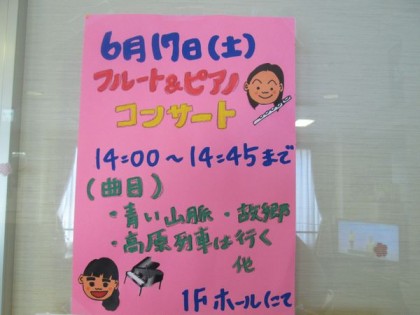 6月17日(土)
フルート&ピアノ
コンサート
14:00~14:45まで
(曲目)
・青い山脈 ・故郷
・高原列車は行く
他
1Fホールにて